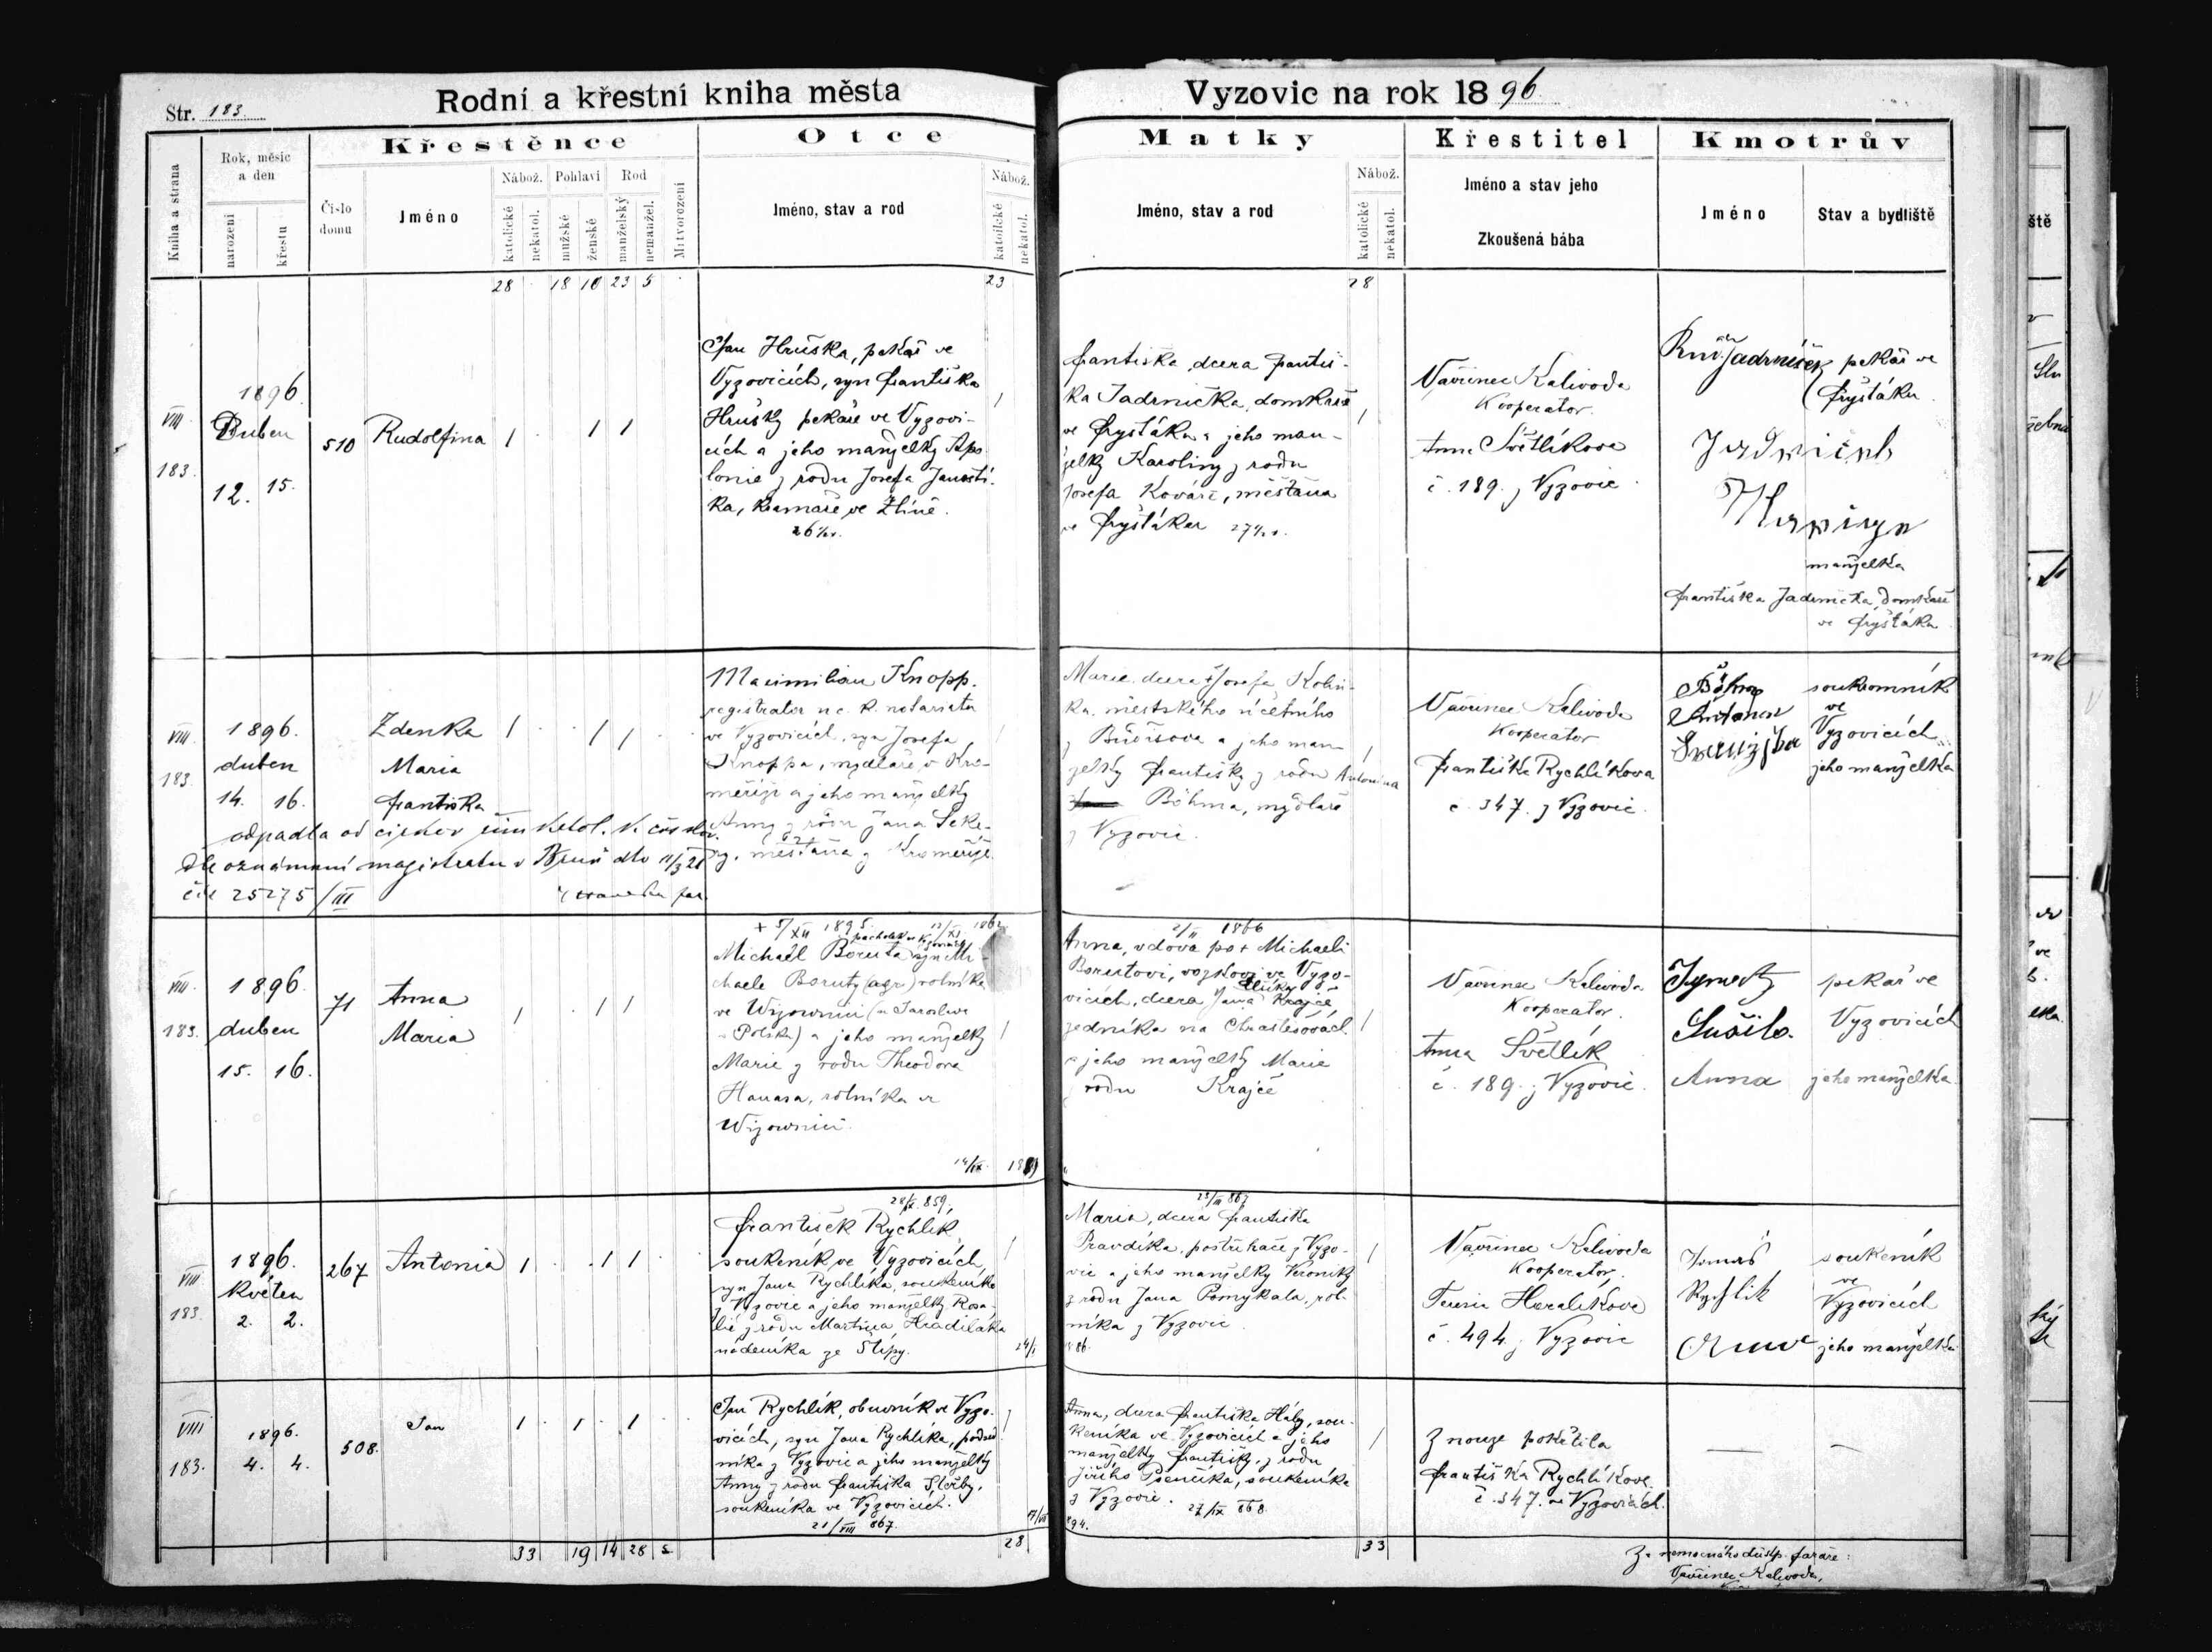 Str. 183.
Rodní a křestní kniha města
Vyzovic na rok 1896
Kniha a strana
Rok, měsíc
a den
narození
křestu
Křestěnce
Číslo
domu
Jméno
Nábož.
katolické
nekatol.
Pohlaví
mužské
ženské
Rod
manželský
nemanžel.
Mrtvorození
Otce
Jméno, stav a rod
Nábož.
katolické
nekatol.
Matky
Jméno, stav a rod
Nábož.
katolické
nekatol.
Křestitel
Jméno a stav jeho
Zkoušená bába
Kmotrův
Jméno
Stav a bydliště
28 18 10 23 5 23 28
VIII.
183.
1896.
Duben
12. 15.
510
Rudolfina
1 1 1
Jan Hruška, pekař ve
Vyzovicích, syn Františka
Hrušky pekaře ve Vyzovi-
cích a jeho manželky Apo-
lonie z rodu Josefa
ka, kramáře ve Zlíně.
1
Františka, dcera Františ-
ka Jadrnička, domkaře
ve Fryštáku a jeho man-
želky Karoliny z rodu
Josefa Kováře, měšťana
ve Fryštáku
1
Vavřinec Kalivoda
Kooperator.
Anna Světlíkova
č. 189. z Vyzovic.
Jadrníček
pekař ve
Fryštáku
manželka
Františka Jadrníčka, domkaře
ve Fryštáku
VIII.
183.
1896.
duben
14. 16.
Zdenka
Maria
Františka
1 1 1
odpadla od církev řím. katol. k čs.
dle oznámení magistratu v Brně dto 11/3 21
čís 25275/III
Maximilian Knopp.
registrator u c. k. notariata
ve Vyzovicích, syn Josefa
Knoppa, mydláře v Kro-
měříži a jeho manželky
Anny z rodu Jana
měšťana z Kroměříže.
Marie dcera † Josefa
ka. městského účetního
z a jeho man-
želky Františky z rodu Antonina
Böhma, mydláře
z Vyzovic.
1
Vavřinec Kalivoda
Kooperator
Františka Rychlíkova
č. 347. z Vyzovic.
Böhm
Antonín
soukromník
ve
Vyzovicích
jeho manželka
VIII.
183.
1896.
duben
15. 16.
71
Anna
Maria
1 1 1
+ 5/XII 1895.
Michael Boruta syn Mi-
chaele Boruty (agr.) rolníka
ve Wijownici (u Jaroslave
v Polsku) a jeho manželky
Marie z rodu Theodora
Hanasa, rolníka ve
Wijownici.
1
2/II 1866
Anna, vdova po + Michaeli
Borutovi, ve Vyzo-
vicích, dcera Jana Krajče
na
a jeho manželky Marie
rodu Krajče
1
Vavřinec Kalivoda
Kooperator.
Anna Světlík
č. 189. z Vyzovic.
Sušila.
Anna
pekař ve
Vyzovicích
jeho manželka.
VIII
183.
1896.
květen
2. 2.
267
Antonia
1 1 1
František Rychlík,
soukeník ve Vyzovicích,
syn Jana Rychlíka, soukeníka
z Vyzovic a jeho manželky Rosa-
lie z rodu Martina Hradiláka
nádeníka ze Štípy.
1
Maria, dcera Františka
Pravdíka, postřihače z Vyzo-
vic a jeho manželky Veroniky
z rodu Jana Pomykala, rol-
níka z Vyzovic.
1
Vavřinec Kalivoda
Kooperator,
Terezie Haralíkova
č. 494. z Vyzovic
Tomáš
Rychlík
soukeník
ve
Vyzovicích
jeho manželka
VIII
183.
1896.
4. 4.
508.
Jan
1 1 1
Jan Rychlík, obuvník ve Vyzo-
vicích, syn Jana Rychlíka,
níka z Vyzovic a jeho manželky
Anny z rodu Františka
soukeníka ve Vyzovicích.
21/VIII 867.
1
Anna, dcera Františka Háby, sou-
keníka ve Vyzovicích a jeho
manželky Františky, z rodu
Jiřího Pšenčíka, soukeníka
z Vyzovic. 27/IX 868.
1
Z nouze pokřtila
Františka Rychlíkova
č. 347. ve Vyzovicích.
33 19 14 28 5 28 33
Za nemocného důstp. faráře:
Vavřinec Kalivoda,